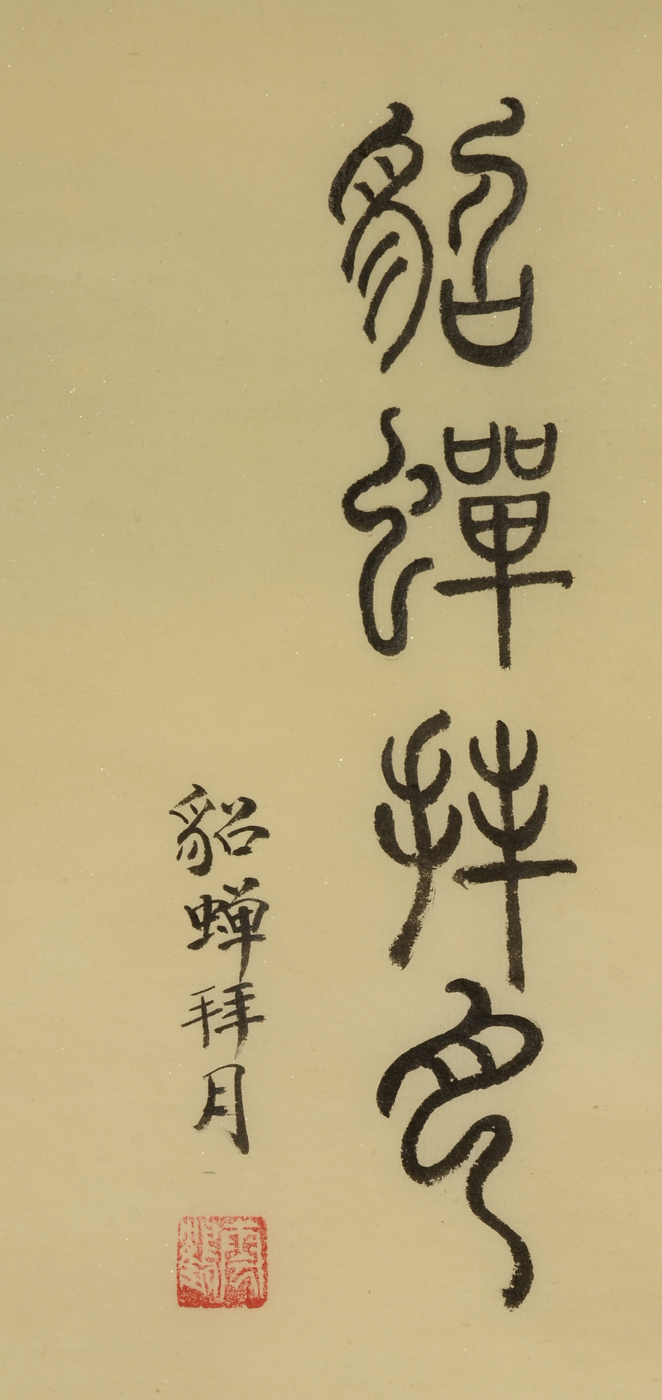 貂蟬拜月
貂蝉拜月